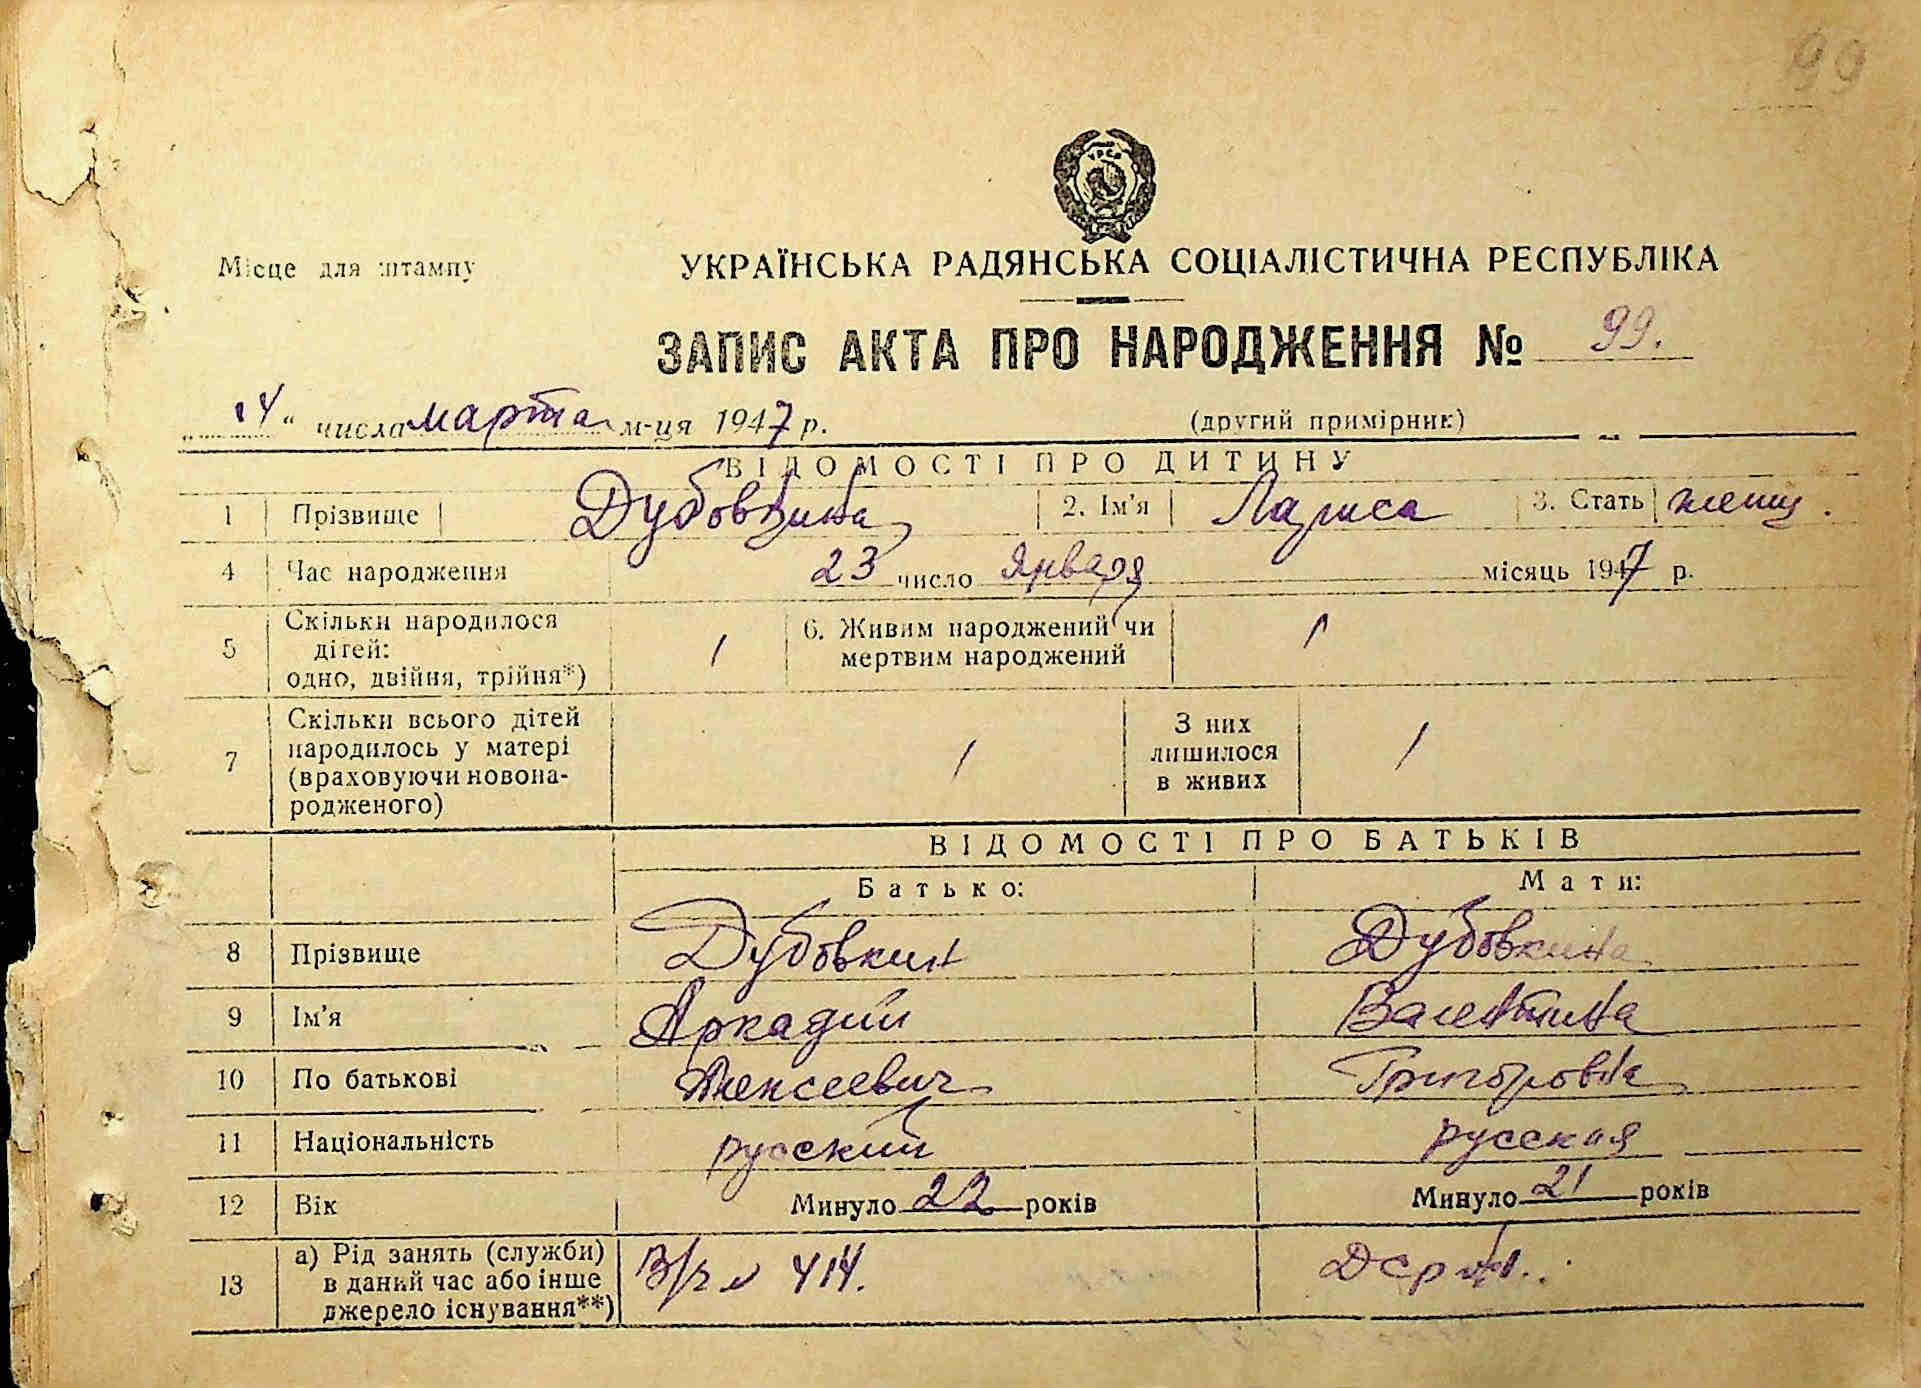 99
УРСР
Місце для штампу
УКРАЇНСЬКА РАДЯНСЬКА СОЦІАЛІСТИЧНА РЕСПУБЛІКА
ЗАПИС АКТА ПРО НАРОДЖЕННЯ № 99.
„14“ числа марта м-ця 1947 р. (другий примірник)
ВІДОМОСТІ ПРО ДИТИНУ
1 Прізвище Дубовкина 2. Ім'я Лариса 3. Стать женщ.
4 Час народження 23 число Января місяць 1947 р.
5 Скільки народилося дітей: одно, двійня, трійня*) 1 6. Живим народжений чи мертвим народжений 1
7 Скільки всього дітей народилось у матері (враховуючи новонародженого) 1 З них лишилося в живих 1
ВІДОМОСТІ ПРО БАТЬКІВ
Батько: Мати:
8 Прізвище Дубовкин Дубовкина
9 Ім'я Аркадий Валентина
10 По батькові Алексеевич Григоровна
11 Національність русский русская
12 Вік Минуло 22 років Минуло 21 років
13 а) Рід занять (служби) в даний час або інше джерело існування**) В/ч 414.